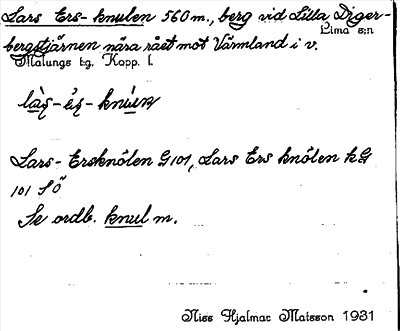 Lars Ers-knulen 560 m., berg vid Lilla Diger-
Lima s:n
bergstjärnen nära rået mot Värmland i v.
Malungs tg. Kopp. l.
Lars-Ersknölen G 101, Lars Ers knölen kG
101 SÖ
Se ordb. knul m.
Niss Hjalmar Matsson 1931